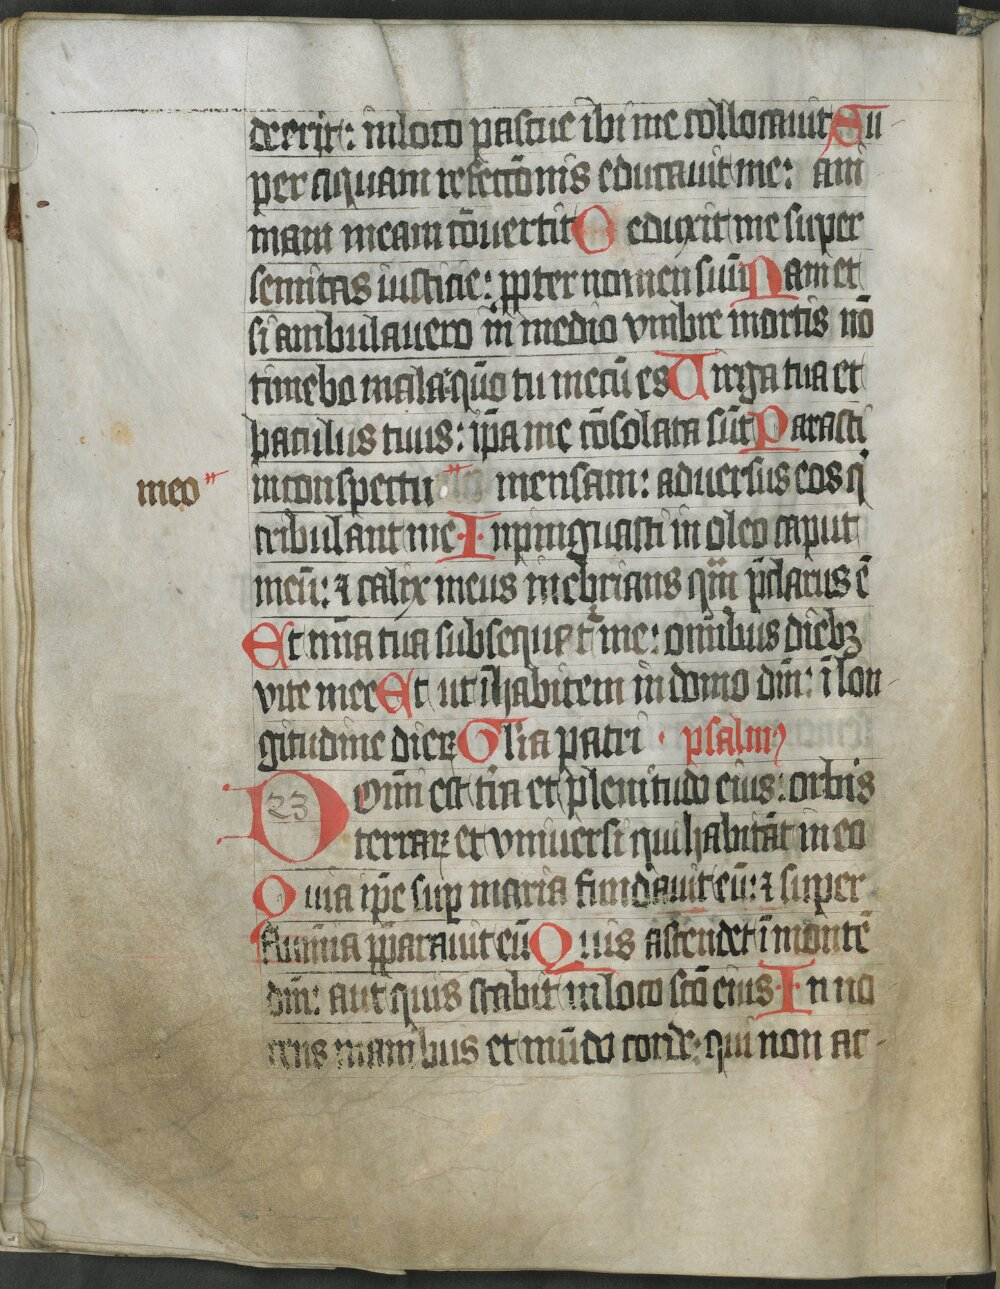 deerit: in loco pascue ibi me collocauit Su
per aquam refectōnis educauit me: ani
mam meam cōuertit Deduxit me super
semitas iusticie: ꝓpter nomen suū Nam et
si ambulauero in medio vmbre mortis nō
timebo mala: qm̄ tu mecū es Uirga tua et
baculus tuus: ip̄a me cōsolata sūt Parasti
meo in conspectu mensam: aduersus eos q̄
tribulant me Inpinguasti in oleo caput
meū: ⁊ calix meus inebrians qm̄ p̄clarus ē
Et mīa tua subsequat᷑ me: omībus diebꝫ
vite mee Et ut īhabitem in domo dn̄i: ī lon
gitudine dieꝝ Glīa patri · psalmꝰ
23 Domī est t̄ra et plenitudo eius: orbis
terraꝝ et vniuersi qui habitāt in eo
Quia ip̄e suꝑ maria fundauit eū: ⁊ super
flumīa p̄parauit eū Quis ascendet ī montē
dn̄i: aut quis stabit in loco scō eius In no
cens manibus et mūdo corde: qui non ac